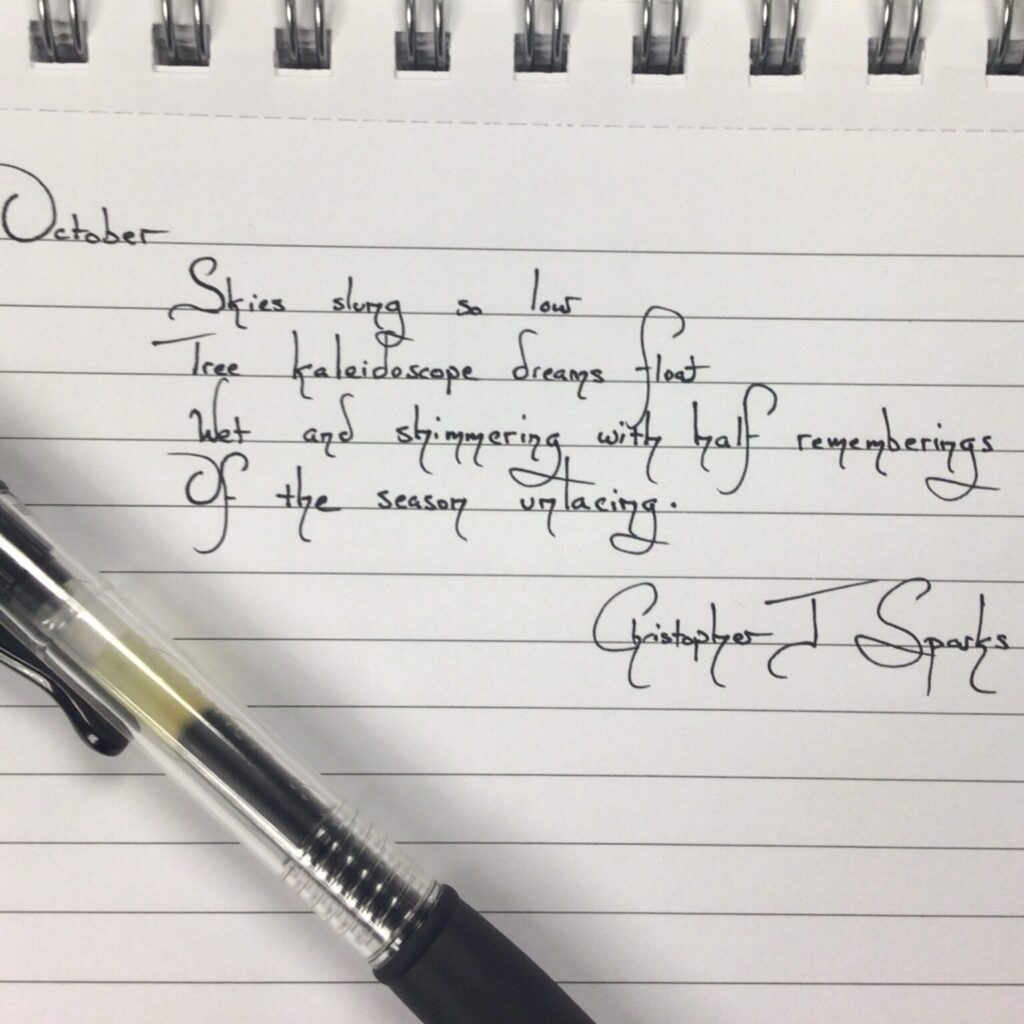 October
Skies slung so low
Tree kaleidoscope dreams float
Wet and shimmering with half rememberings
Of the season unlacing.
Christopher J Sparks